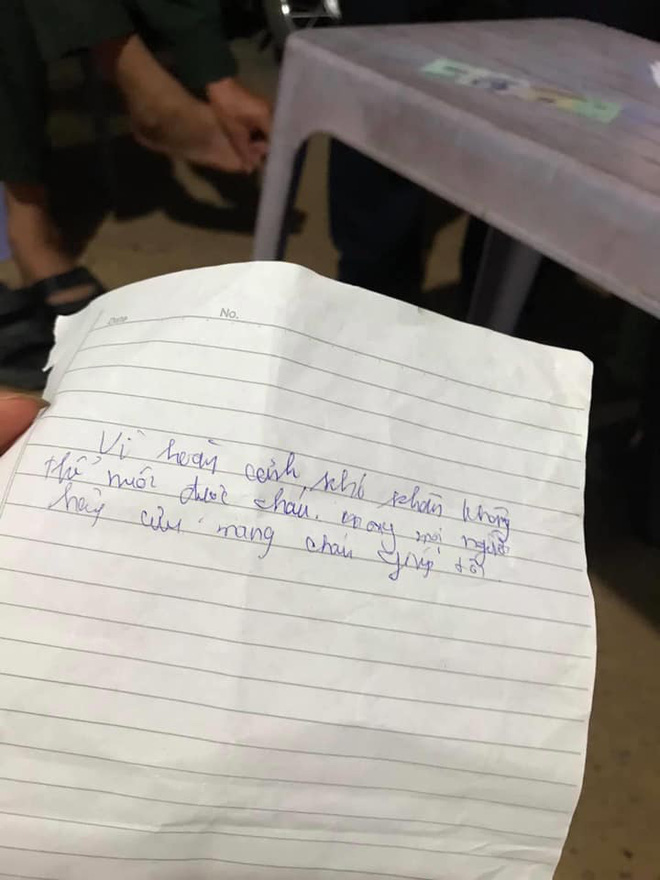 Date No.
Vì hoàn cảnh khó khăn không
thể nuôi được cháu. mong mọi người
hãy cưu mang cháu giúp tôi